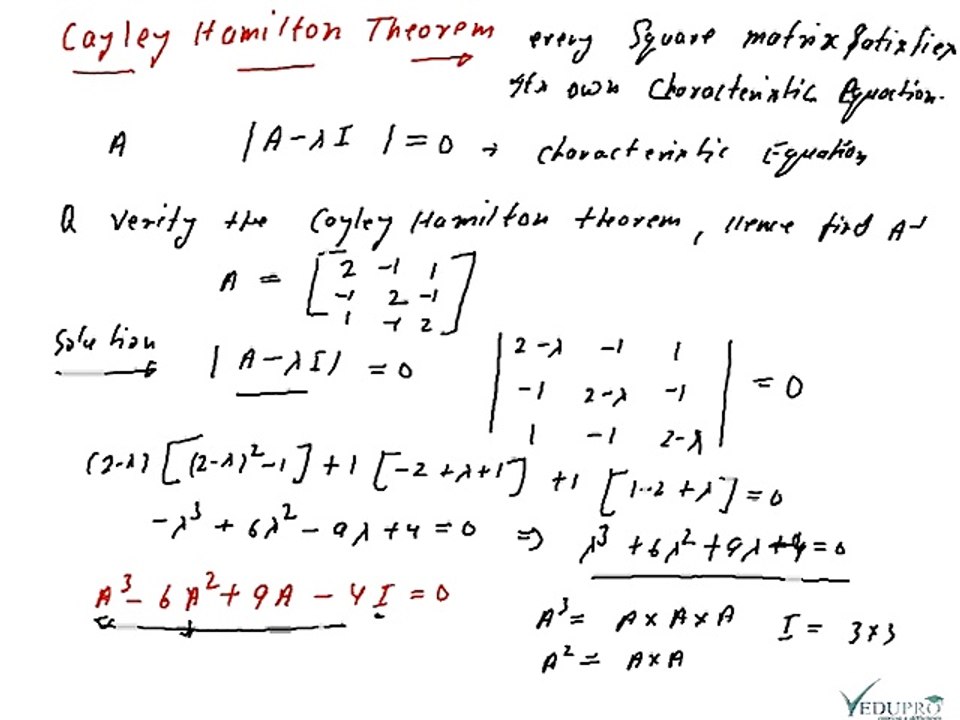 Cayley Hamilton Theorem → every Square matrix Satisfies
its own Characteristic Equation.
A |A-λI| = 0 → characteristic Equation
Q Verify the Cayley Hamilton theorem, Hence find A⁻¹
A = [2 -1 1
-1 2 -1
1 -1 2]
Solution → |A-λI| = 0
|2-λ -1 1
-1 2-λ -1
1 -1 2-λ| = 0
(2-λ)[(2-λ)²-1] + 1[-2+λ+1] + 1[1-2+λ] = 0
-λ³ + 6λ² - 9λ + 4 = 0 ⇒ λ³ + 6λ² + 9λ + 4 = 0
A³ - 6A² + 9A - 4I = 0
A³ = A × A × A I = 3×3
A² = A×A
VEDUPRO